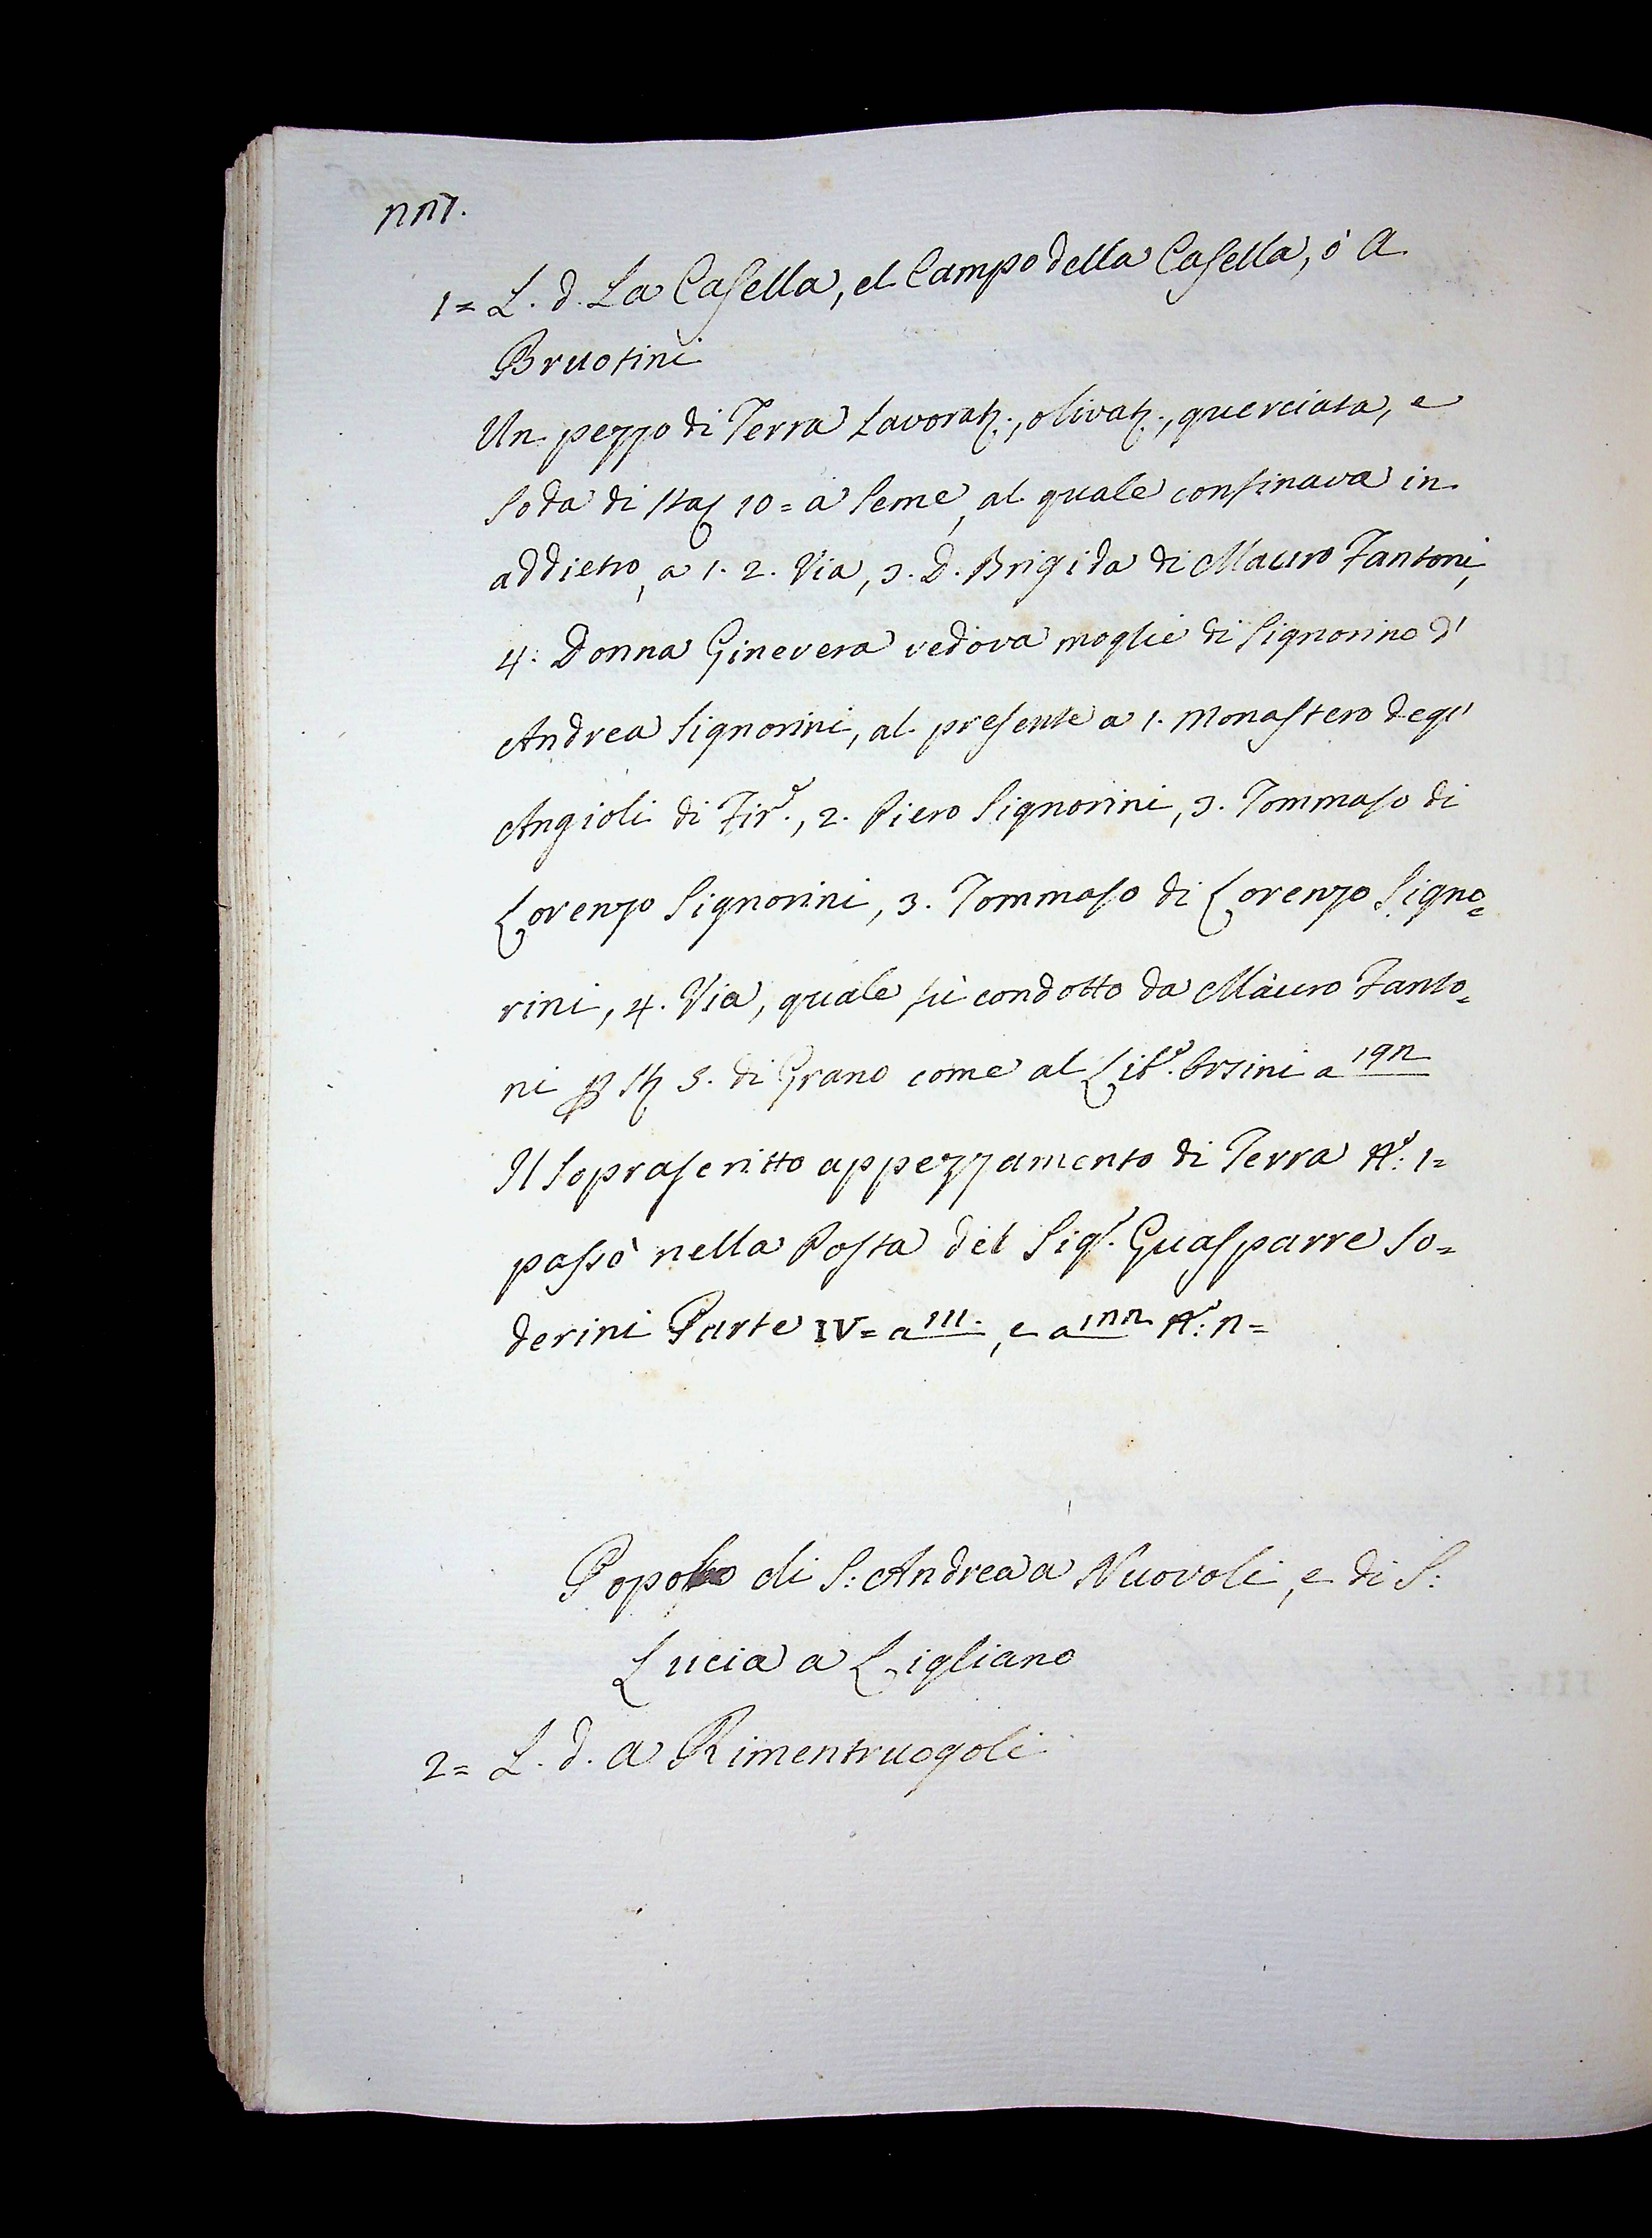 1= L. d. La Casella, el Campo della Casella, ò a
Bruotini
Un pezzo di Terra Lavorat:, olivat:, querciata, e
soda di Sta: 10= a seme, al quale confinava in
addietro, a 1. 2. Via, 3. D. Brigida di Mauro Fantoni,
4. Donna Ginevera vedova moglie di Signorino d'
Andrea Signorini, al presente a 1. Monastero degl'
Angioli di Fir.e, 2. Piero Signorini, 3. Tommaso di
Lorenzo Signorini, 3. Tommaso di Lorenzo Signo=
rini, 4. Via, quale fù condotto da Mauro Fanto=
ni di Grano come al Lib.o Orsini a
Il soprascritto appezzamento di Terra N.o: 1=
passò nella Posta del Sig.r Guasparre So=
derini Parte IV= a 111., e a
Popolo di S: Andrea a Nuovoli, e di S:
Lucia a Ligliano
2= L. d. a Rimentruogoli